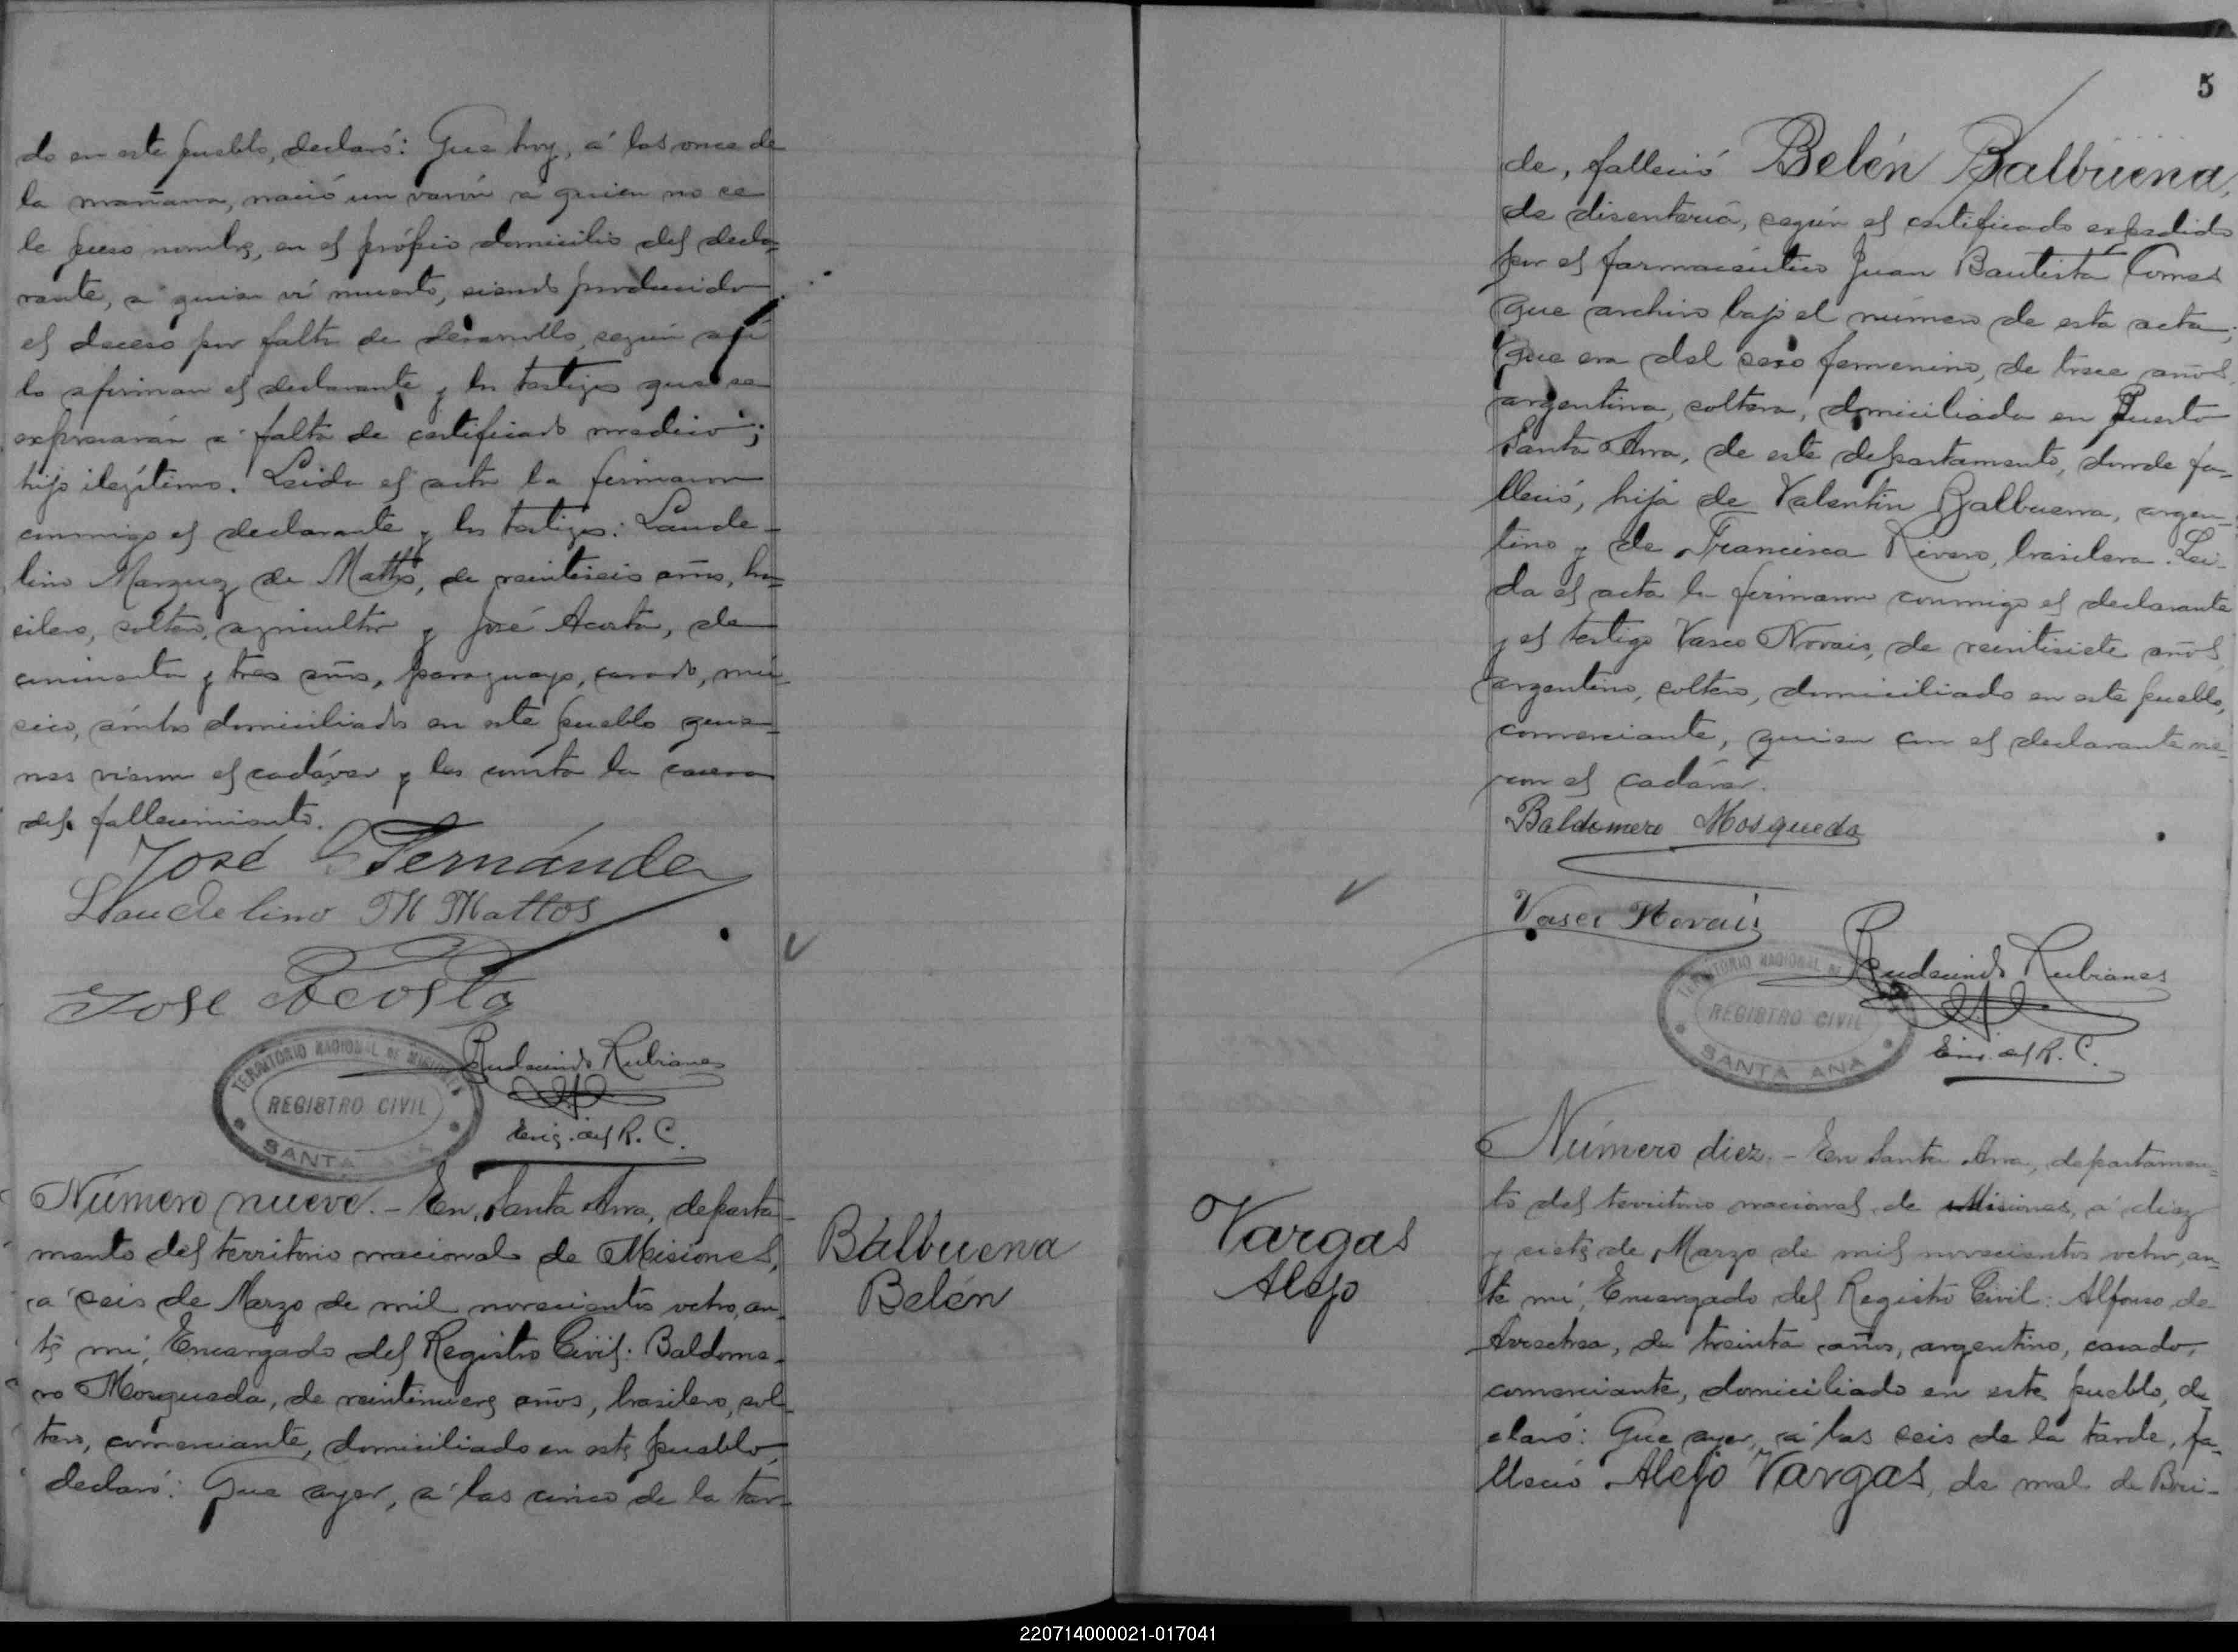 do en este pueblo, declaró: Que hoy, á las once de
la mañana, nació un varón a quien no se
le puso nombre, en el própio domicilio del decla-
rante, a quien ví muerto, siendo producido
el deceso por falta de desarrollo, según así
lo afirman el declarante y los testigos que se
expresarán a falta de certificado medico;
hijo ilegítimo. Leida el acta la firmaron
conmigo el declarante y los testigos: Laude-
lino Marquez de Mattos, de veintiseis años, bra-
silero, soltero, agricultor y José Acosta, de
cincuenta y tres años, paraguayo, casado, mú-
sico, ámbos domiciliados en este pueblo quie-
nes vieron el cadáver y les consta la causa
del fallecimiento.
José Fernández
Laudelino M Mattos
Jose Acosta
TERRITORIO NACIONAL DE MISIONES
REGISTRO CIVIL
SANTA ANA
Rudecindo Rubianes
Enc. del R. C.
Número nueve. - En Santa Ana, departa-
mento del territorio nacional de Misiones,
a seis de Marzo de mil novecientos ocho, an-
te mi, Encargado del Registro Civil: Baldome-
ro Mosqueda, de veintinueve años, brasilero, sol-
tero, comerciante, domiciliado en este pueblo,
declaró: Que ayer, a las cinco de la tar-
Balbuena
Belén
5
de, falleció Belén Balbuena,
de disentería, según el certificado expedido
por el farmacéutico Juan Bautista Comas
que archivo bajo el número de esta acta;
Que era del sexo femenino, de trece años,
argentina, soltera, domiciliada en Puerto
Santa Ana, de este departamento, donde fa-
lleció, hija de Valentin Balbuena, argen-
tino y de Francisca Rivero, brasilera. Lei-
da el acta la firmaron conmigo el declarante
y el testigo Vasco Novais, de veintisiete años,
argentino, soltero, domiciliado en este pueblo,
comerciante, quien con el declarante vie-
ron el cadáver.
Baldomero Mosqueda
Vasco Novais
TERRITORIO NACIONAL DE
REGISTRO CIVIL
SANTA ANA
Rudecindo Rubianes
Enc. del R. C.
Vargas
Alejo
Número diez. - En Santa Ana, departamen-
to del territorio nacional de Misiones, a diez
y siete de Marzo de mil novecientos ocho, an-
te mi, Encargado del Registro Civil: Alfonso de
Arrechea, de treinta años, argentino, casado,
comerciante, domiciliado en este pueblo, de-
claró: Que ayer, a las seis de la tarde, fa-
lleció Alejo Vargas, de mal de Bri-
220714000021-017041